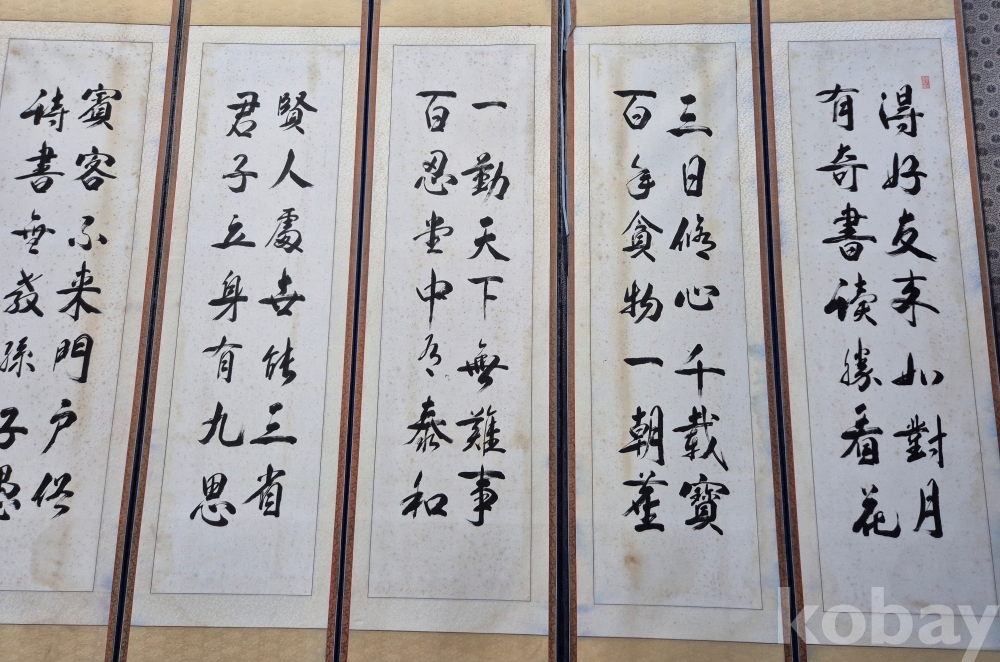 得好友来如對月
有奇書读勝看花
三日修心千載寶
百年貪物一朝塵
一勤天下無難事
百忍堂中有泰和
賢人處世能三省
君子立身有九思
賓客不来門户俗
詩書無教孫子愚
kobay